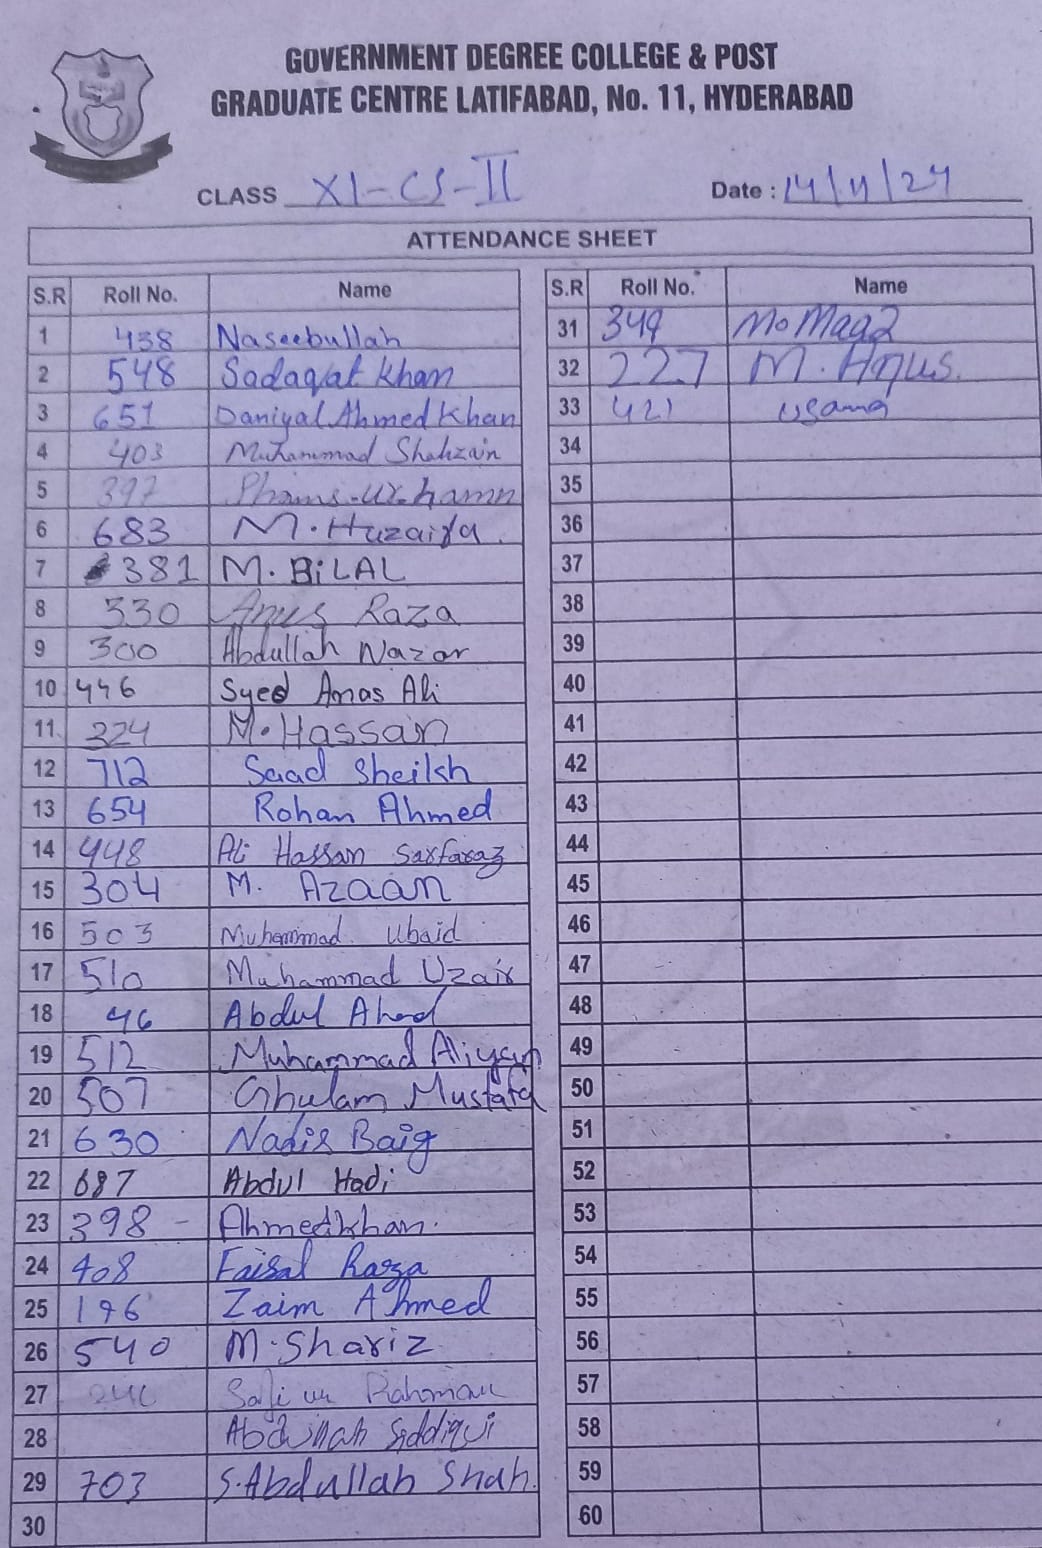 GOVERNMENT DEGREE COLLEGE & POST
GRADUATE CENTRE LATIFABAD, No. 11, HYDERABAD
CLASS XI-CS-II Date : 14/11/24
ATTENDANCE SHEET
S.R Roll No. Name
1 438 Naseebullah
2 548 Sadaqat Khan
3 651 Daniyal Ahmed Khan
4 403 Muhammad Shahzain
5 397
6 683 M. Huzaifa.
7 381 M. BiLAL
8 330 Anus Raza
9 300 Abdullah Nazar
10 446 Syed Anas Ali
11 324 M. Hassan
12 712 Saad Sheikh
13 654 Rohan Ahmed
14 448 Ali Hassan Sarfaraz
15 304 M. Azaan
16 503 Muhammad Ubaid
17 510 Muhammad Uzair
18 46 Abdul Ahad
19 512 Muhammad Aliyan
20 507 Ghulam Mustafa
21 630 Nadir Baig
22 687 Abdul Hadi
23 398 - Ahmed khan.
24 408 Faisal Raza
25 196 Zaim Ahmed
26 540 M. Shariz
27 Safi ur Rahman
28 Abdullah Siddiqui
29 703 S. Abdullah Shah.
30
S.R Roll No. Name
31 349
32 227 M. Anus.
33 421 usama
34
35
36
37
38
39
40
41
42
43
44
45
46
47
48
49
50
51
52
53
54
55
56
57
58
59
60